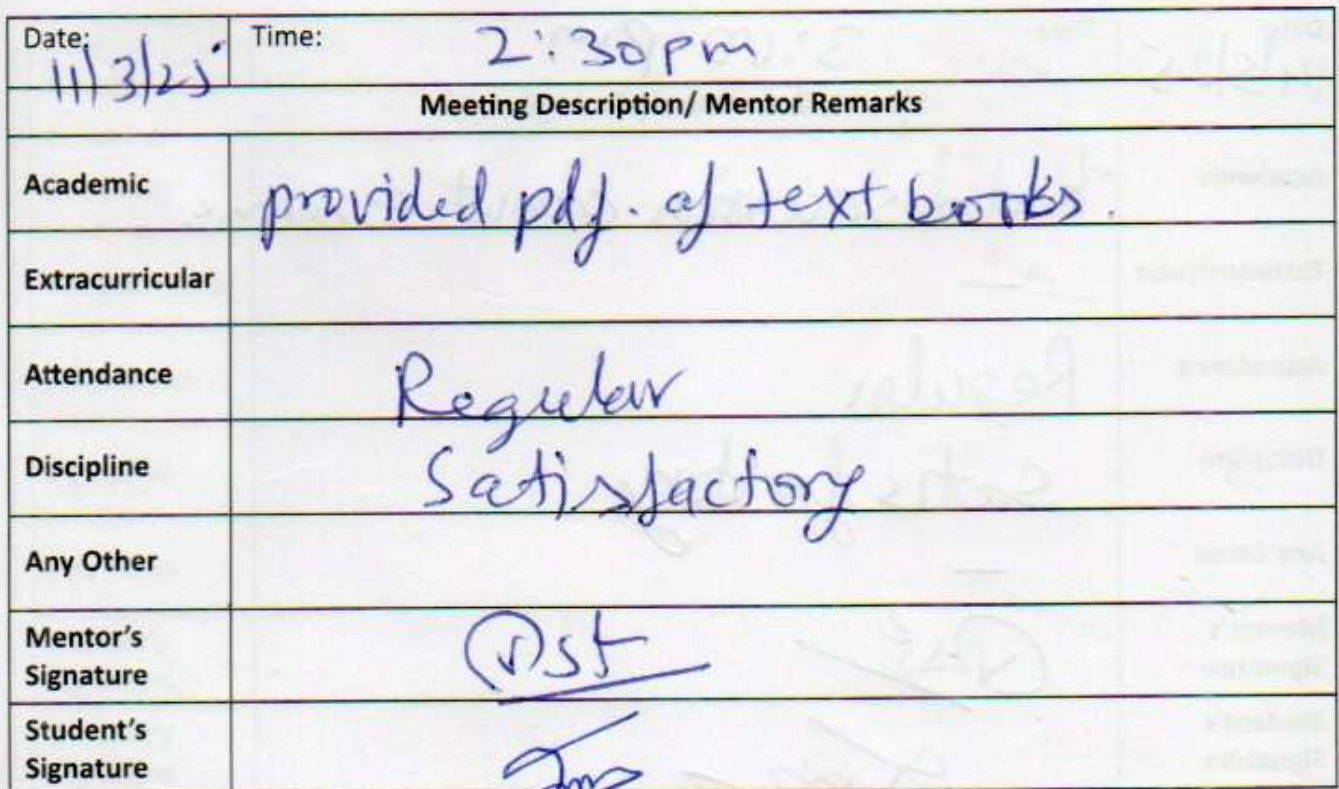 Date: 11/3/25 Time: 2:30pm
Meeting Description/ Mentor Remarks
Academic provided pdf. of text books.
Extracurricular
Attendance Regular
Discipline Satisfactory
Any Other
Mentor's
Signature
Student's
Signature